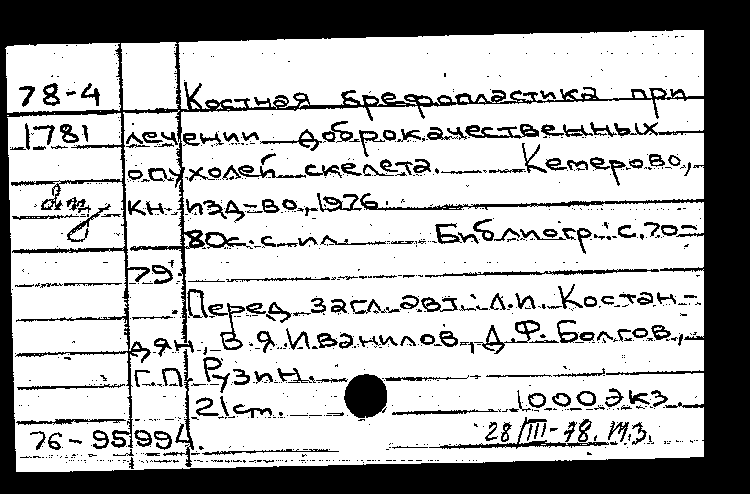 78-4 Костная брефопластика при
1781 лечении доброкачественных
опухолей скелета. Кемерово,
кн. изд-во, 1976.
80с. с ил. Библиогр.: с.70-
79.
Перед загл. авт.: Л.И. Костан-
дян, В.Я. Иванилов, Д.Ф. Болгов,
Г.П. Рузин.
21 см. 1000 экз.
76-95994. 28/III-78. М.З.